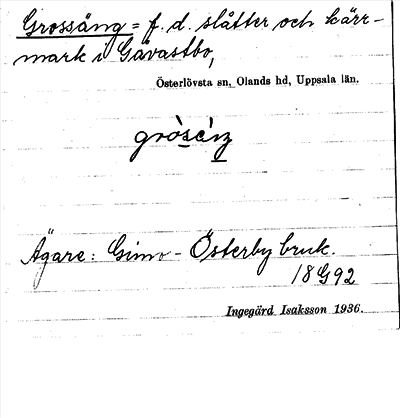 Grossäng = f. d. slåtter och kärr-
mark i Gåvastbo,
Österlövsta sn, Olands hd, Uppsala län.
Ägare: Gimo-Österby bruk.
18G92
Ingegärd Isaksson 1936.